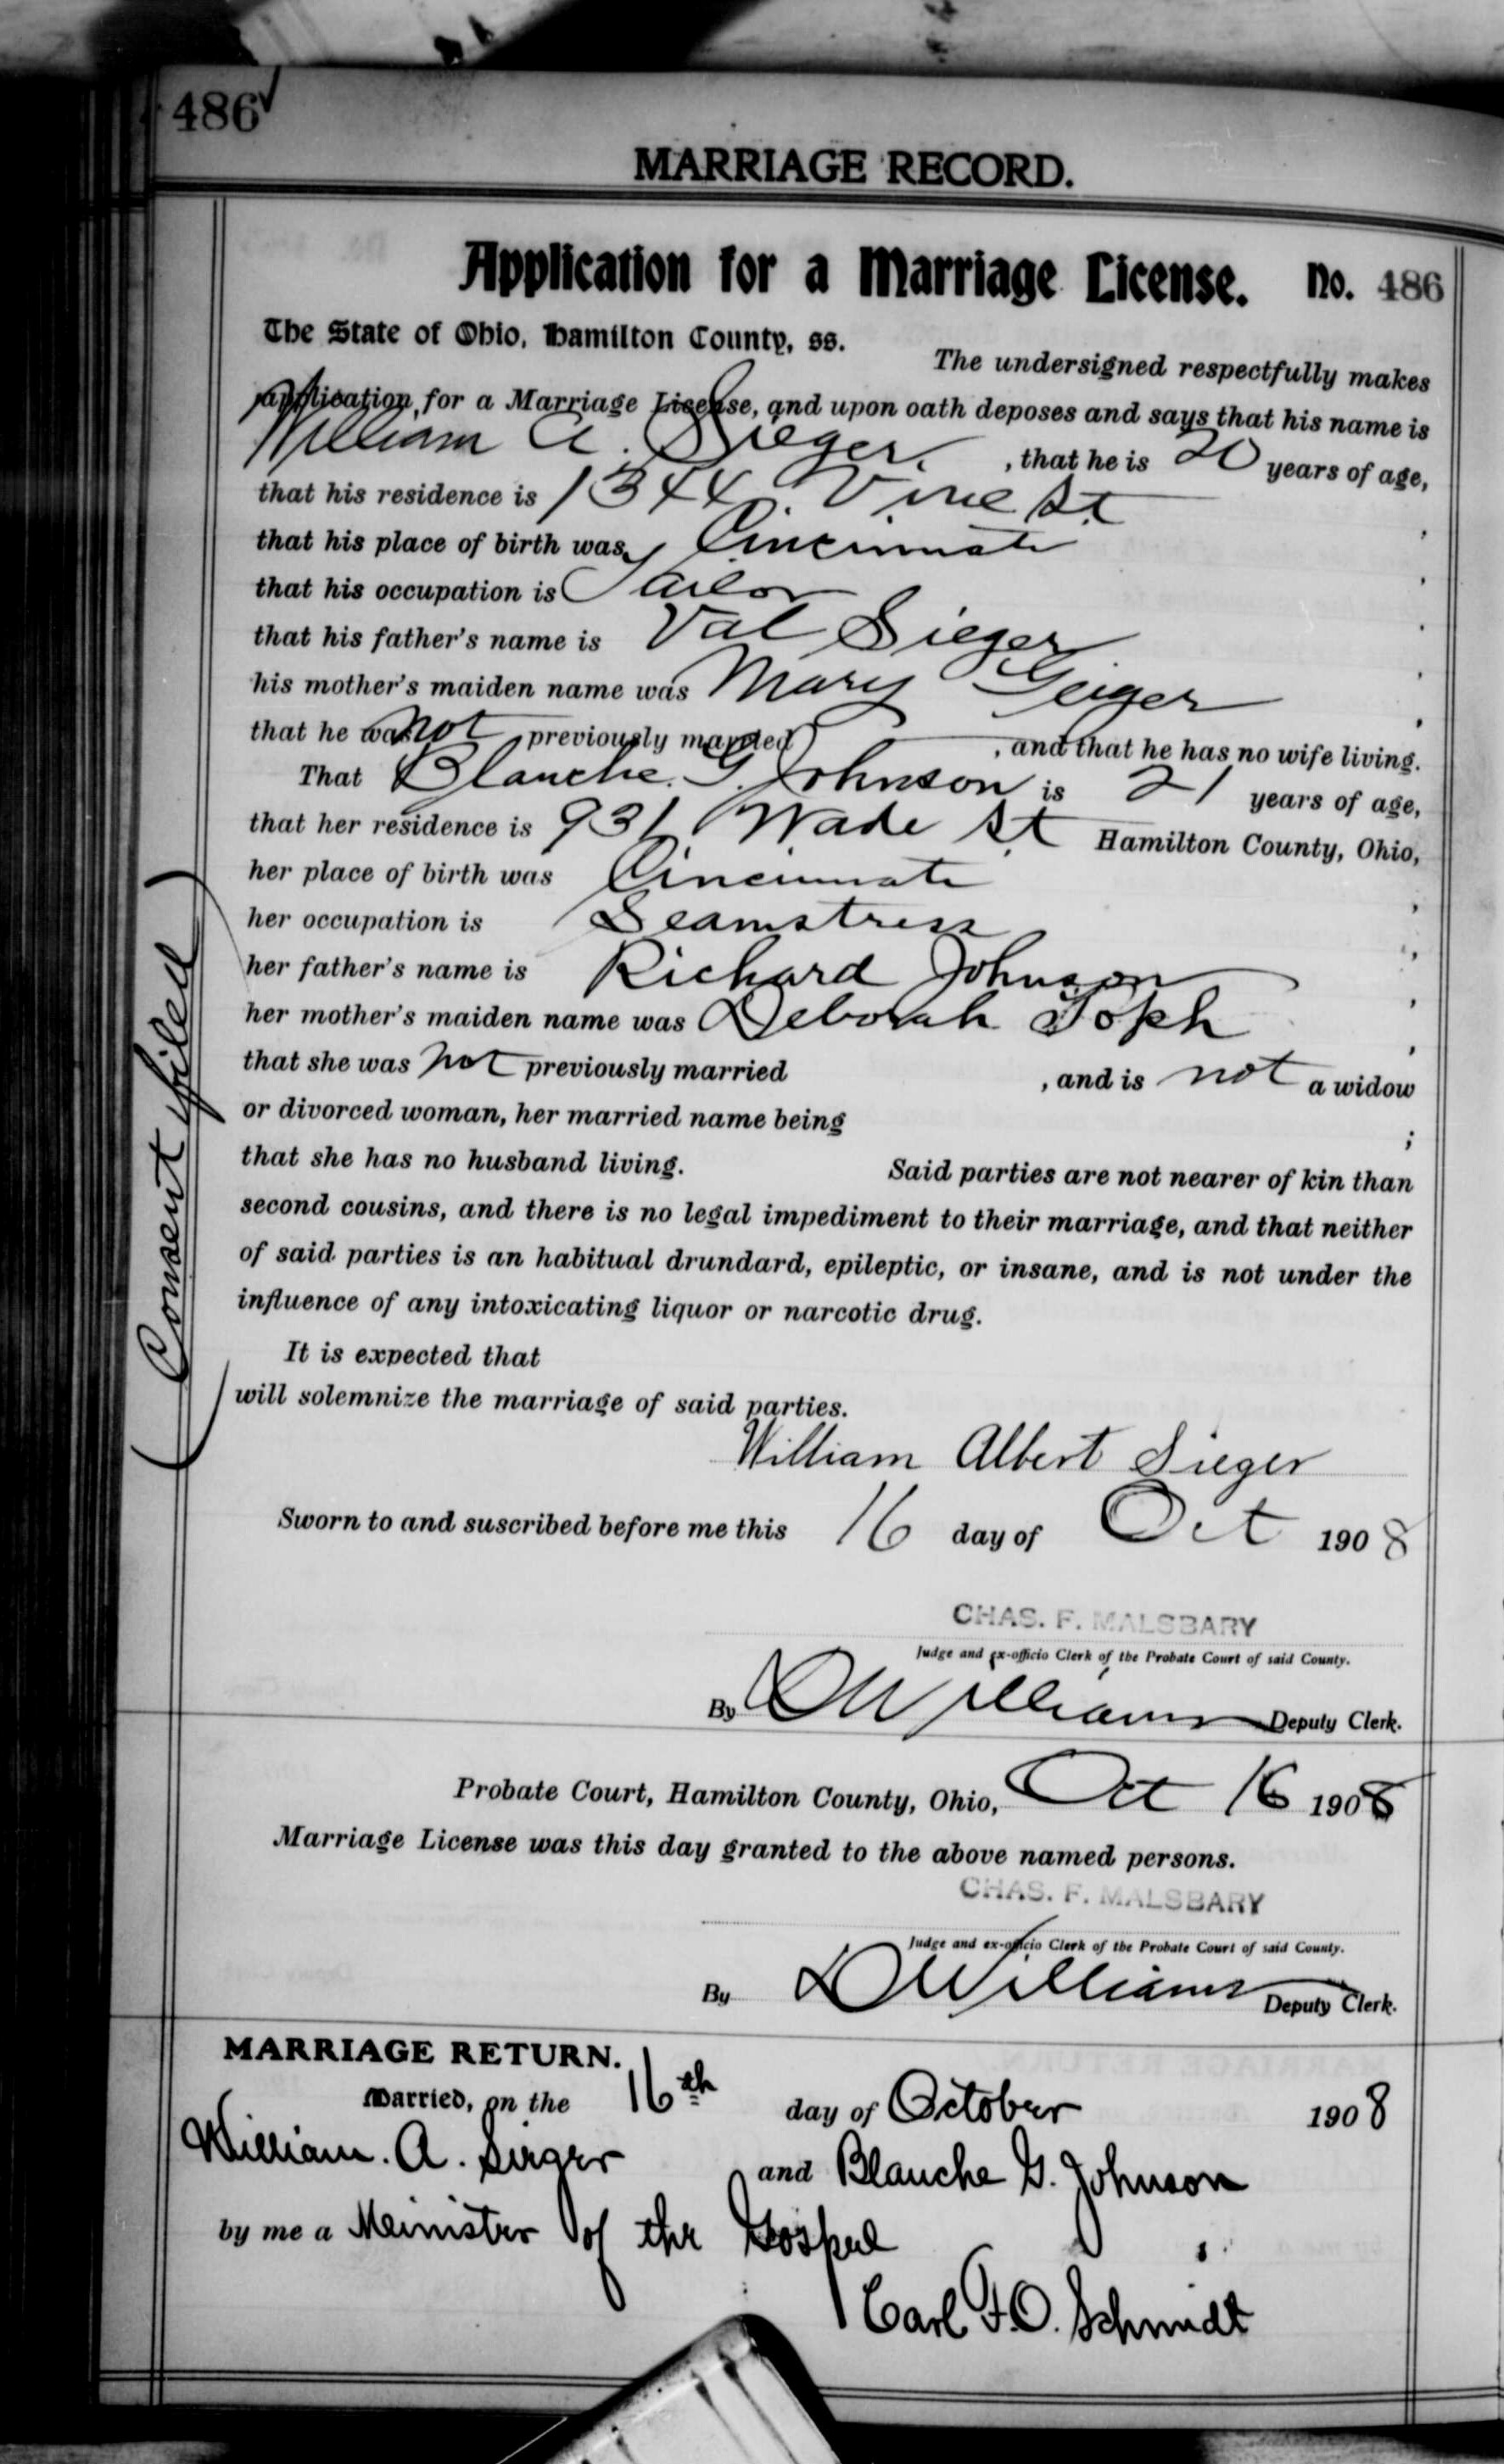 486✓
MARRIAGE RECORD.
Application for a Marriage License. No. 486
The State of Ohio, Hamilton County, ss.
The undersigned respectfully makes
application for a Marriage License, and upon oath deposes and says that his name is
William A. Sieger, that he is 20 years of age,
that his residence is 1344 Vine St,
that his place of birth was Cincinnati,
that his occupation is Tailor,
that his father's name is Val Sieger,
his mother's maiden name was Mary Geiger,
that he was not previously married, and that he has no wife living.
That Blanche G. Johnson is 21 years of age,
that her residence is 931 Wade St Hamilton County, Ohio,
her place of birth was Cincinnati,
her occupation is Seamstress,
her father's name is Richard Johnson,
her mother's maiden name was Deborah Toph,
that she was not previously married, and is not a widow
or divorced woman, her married name being ;
that she has no husband living. Said parties are not nearer of kin than
second cousins, and there is no legal impediment to their marriage, and that neither
of said parties is an habitual drundard, epileptic, or insane, and is not under the
influence of any intoxicating liquor or narcotic drug.
It is expected that
will solemnize the marriage of said parties.
(Consent filed)
William Albert Sieger
Sworn to and suscribed before me this 16 day of Oct 1908
CHAS. F. MALSBARY
Judge and ex-officio Clerk of the Probate Court of said County.
By D Williams Deputy Clerk.
Probate Court, Hamilton County, Ohio, Oct 16 1908
Marriage License was this day granted to the above named persons.
CHAS. F. MALSBARY
Judge and ex-officio Clerk of the Probate Court of said County.
By D Williams Deputy Clerk.
MARRIAGE RETURN.
Married, on the 16th day of October 1908
William. A. Sieger and Blanche G. Johnson
by me a Meinister of the Gospel
Carl F.O. Schmidt